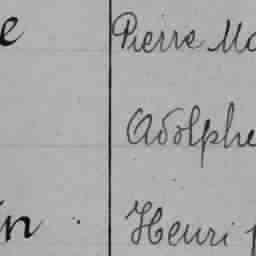 e Pierre Ma
Adolphe
in . Henri